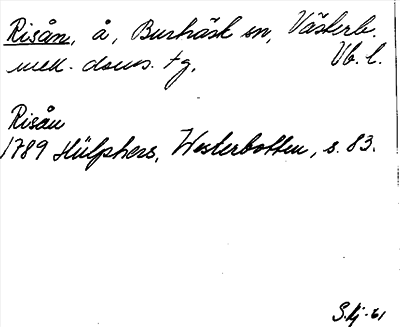 Risån, å, Burträsk sn, Västerb.
mell. doms. tg. Vb. l.
Risån
1789 Hülphers, Westerbotten, s. 83.
S.Kj -61